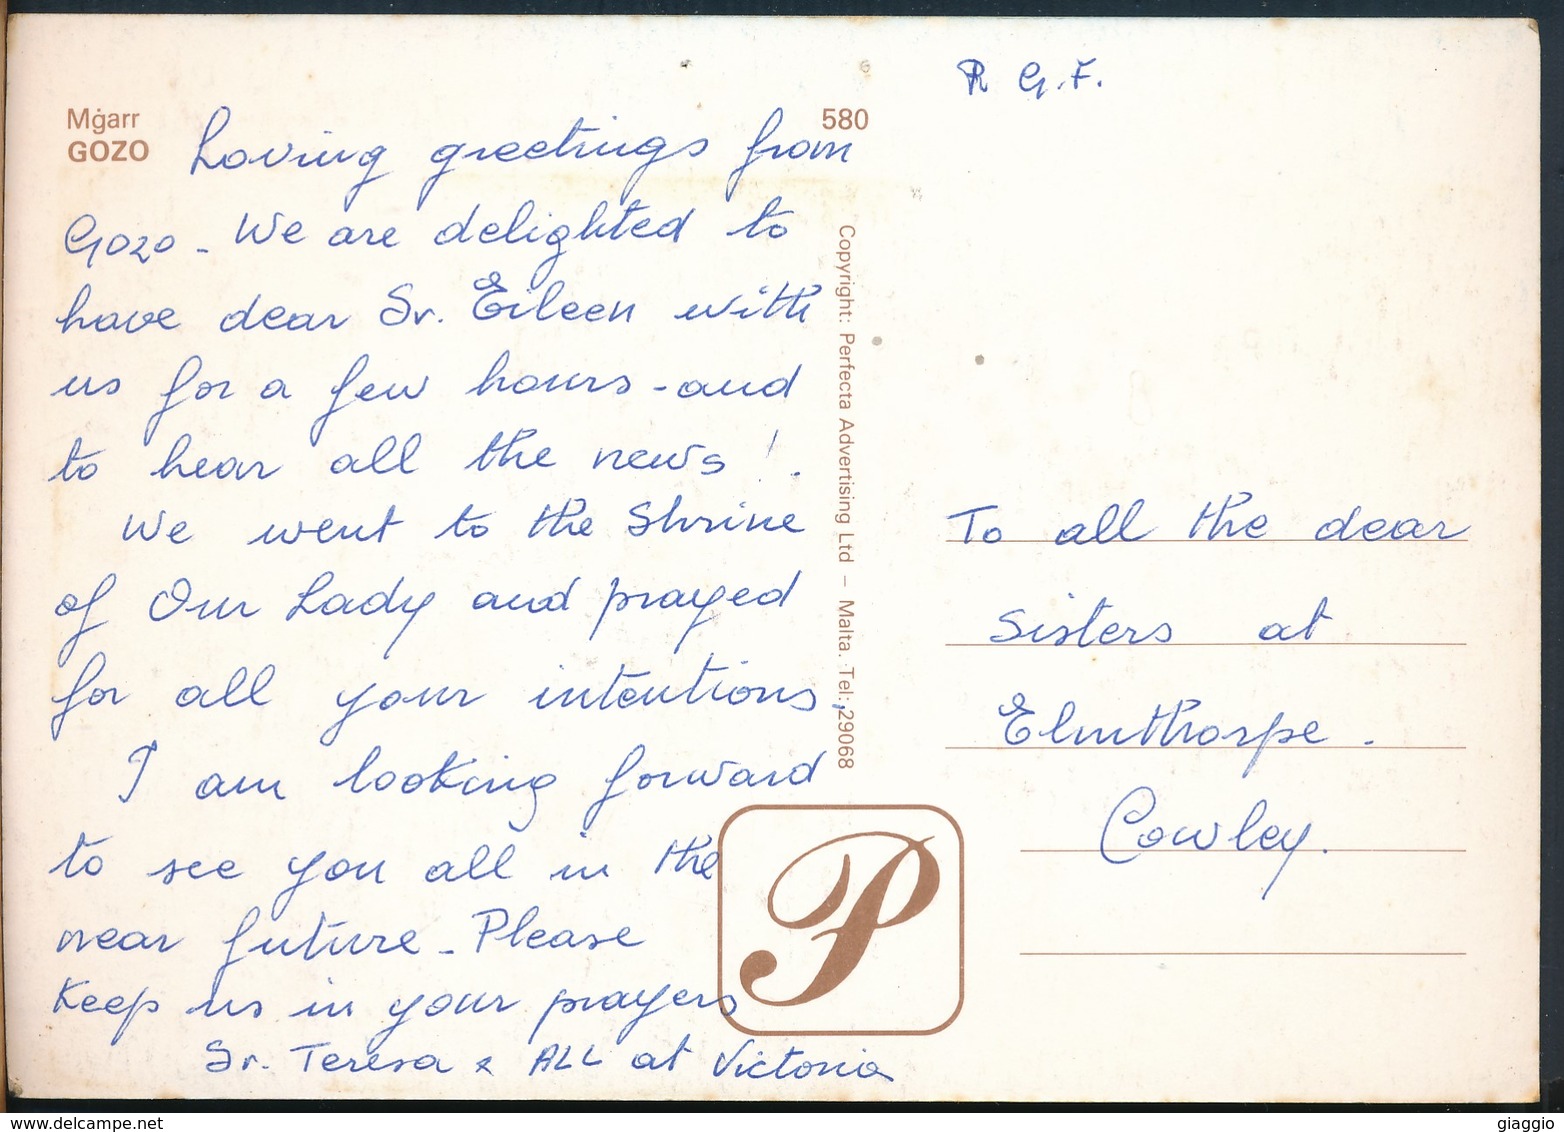 R G.F.
Mġarr
GOZO
580
Loving greetings from
Gozo - We are delighted to
have dear Sr. Eileen with
us for a few hours - and
to hear all the news !.
We went to the Shrine
of Our Lady and prayed
for all your intentions,
I am looking forward
to see you all in the
near future - Please
Keep us in your prayers
Sr. Teresa & ALL at Victoria
Copyright: Perfecta Advertising Ltd – Malta. Tel: 29068
P
To all the dear
Sisters at
Elmthorpe.
Cowley.
www.delcampe.net
giaggio